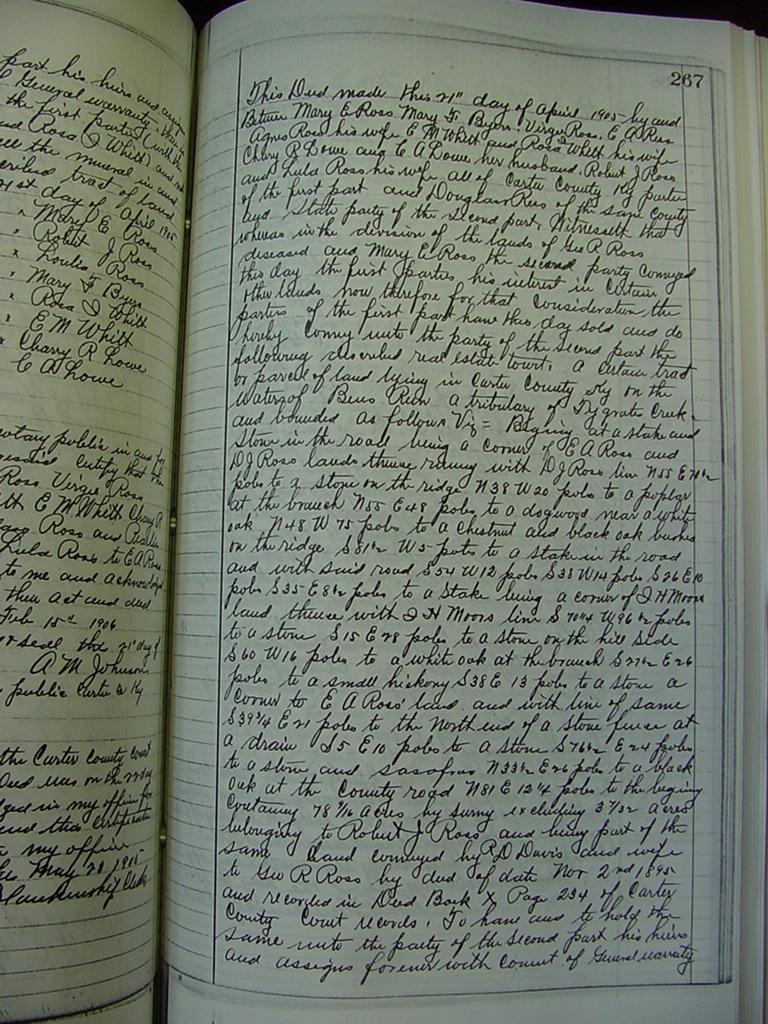 part his heirs and assigns
General warranty
the first parties (with the
and Rosa I Whitt) and
all the mineral in and
described tract of land
21st day of April 1905
" Mary E Ross
" Robert J Ross
" Loulie Ross
" Mary F Byers
" Rosa I Whitt
" E M Whitt
" Charry R Lowe
C A Lowe
notary public in and for
certify that the
Ross Virgie Ross
E M Whitt Chary R
Ross and
Lula Ross to E A Ross
to me and acknowledged
their act and deed
Feb 15th 1906
seal this 21st day of
A M Johnson
public Carter Co Ky
the Carter County Court
Deed was on the 22 day
in my office for
and this certificate
in my office
May 20, 1905
Clerk
267
This Deed made this 21st day of April 1905 by and
Between Mary E Ross Mary F. Byers. Virgie Ross. E A Ross
Agnes Ross his wife E M Whitt and Rosa I Whitt his wife
Chary R Lowe and C A Lowe her husband. Robert J Ross
and Lula Ross his wife all of Carter County Ky parties
of the first part and Douglas Ross of the same County
and State party of the second part, Witnesseth that
whereas in the division of the lands of Geo R Ross
deseased and Mary E Ross the second party conveyed
this day the first parties his interest in certain
other lands now therefore for that consideration the
parties of the first part have this day sold and do
hereby convey unto the party of the second part the
following described real estate towit: a certain tract
or parcel of land lying in Carter County Ky on the
waters of Bens Run a tributary of Tygrats Creek
and bounded as follows Viz = Beginy at a stake and
Stone in the road being a corner of E A Ross and
D J Ross lands thence runing with D J Ross line N 55 E 70 1/2
poles to a stone on the ridge N 38 W 20 poles to a poplar
at the branch N 55 E 48 poles to a dogwood near a white
oak N 48 W 75 poles to a Chestnut and black oak bushes
on the ridge S 81 1/2 W 5 poles to a stake in the road
and with said road S 54 W 12 poles S 38 W 14 poles S 26 E 10
poles S 35 E 8 1/2 poles to a Stake being a corner of I H Moore
land thence with I H Moors line S 70 1/4 W 96 1/2 poles
to a stone S 15 E 28 poles to a stone on the hill side
S 60 W 16 poles to a white oak at the branch S 27 1/2 E 26
poles to a small hickory S 38 E 13 poles to a stone a
corner to E A Ross' land. and with line of same
S 39 3/4 E 21 poles to the North end of a stone fence at
a drain S 5 E 10 poles to a stone S 76 1/2 E 24 poles
to a stone and sasafras N 33 1/2 E 26 poles to a black
Oak at the County road N 81 E 12 1/4 poles to the beginy
Containing 78 7/16 acres by survy excluding 3 7/32 acres
belonging to Robert J Ross and being part of the
same land conveyed by R D Davis and wife
to Geo R Ross by deed of date Nov 2nd 1895
and recorded in Deed Book X Page 234 of Carter
County Court records. To have and to hold the
same unto the party of the second part his heirs
and assigns forever with covent of General warranty